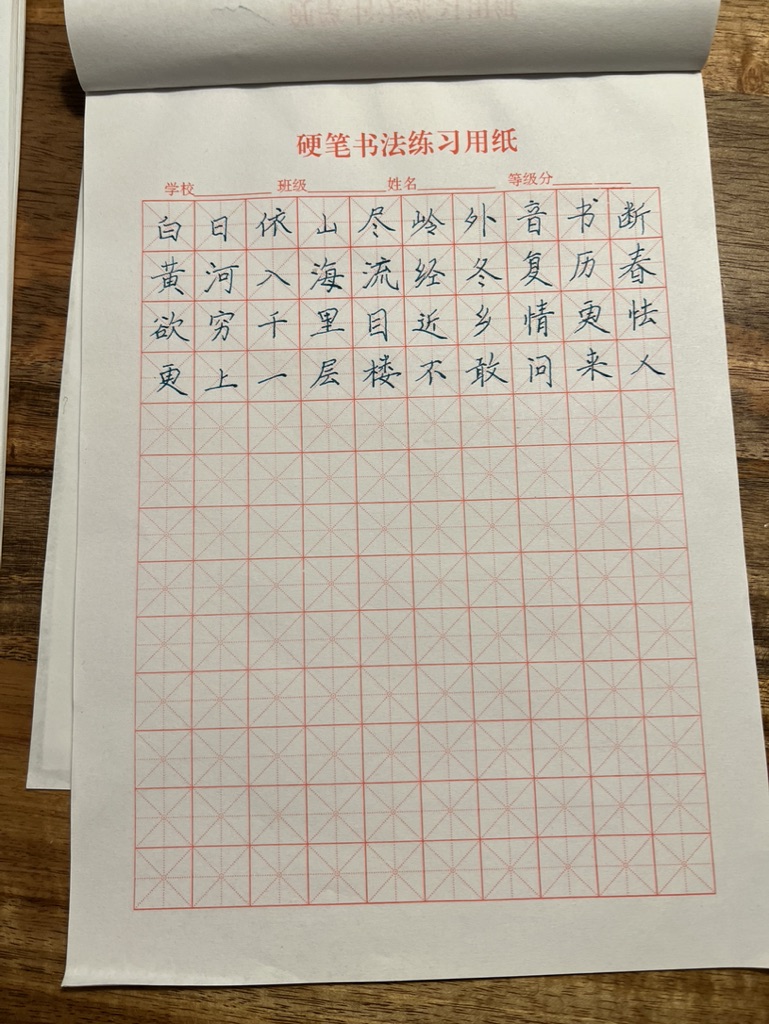 硬笔书法练习用纸
学校 班级 姓名 等级分
白日依山尽岭外音书断
黄河入海流经冬复历春
欲穷千里目近乡情更怯
更上一层楼不敢问来人